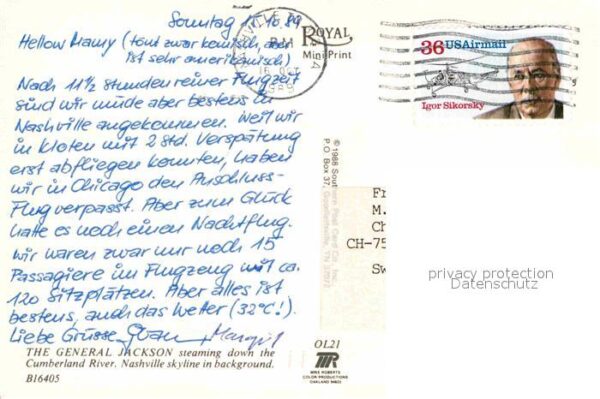 Sonntag 15.10.89
Hellow Mamy (tönt zwar komisch, aber
ist sehr amerikanisch)
Nach 11½ stunden reiner Flugzeit
sind wir müde aber bestens in
Nashville angekommen. Weil wir
in Kloten mit 2 std. Verspätung
erst abfliegen konnten, haben
wir in Chicago den Anschluss-
Flug verpasst. Aber zum Glück
hatte es noch einen Nachtflug.
Wir waren zwar nur noch 15
Passagiere im Flugzeug mit ca.
120 Sitzplätzen. Aber alles ist
bestens, auch das Wetter (32°C!).
Liebe Grüsse Margrit
THE GENERAL JACKSON steaming down the
Cumberland River. Nashville skyline in background.
B16405
PM
ROYAL
Mini Print
36 USAirmail
Igor Sikorsky
© 1988 Southern Post Card Co. Inc.
P.O. Box 37, Goodlettsville, TN 37072
Fr
M.
Ch
CH-75
Sw
privacy protection
Datenschutz
OL21
MR
MIKE ROBERTS
COLOR PRODUCTIONS
OAKLAND 94623